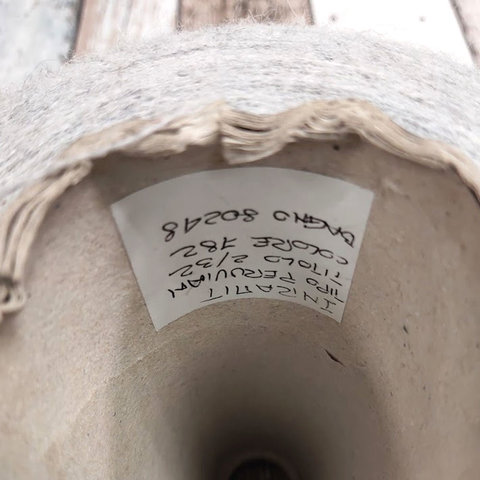 INZAMIT
TIPO PERUVIAN
TITOLO 2/32
COLORE 782
BAGNO 80248